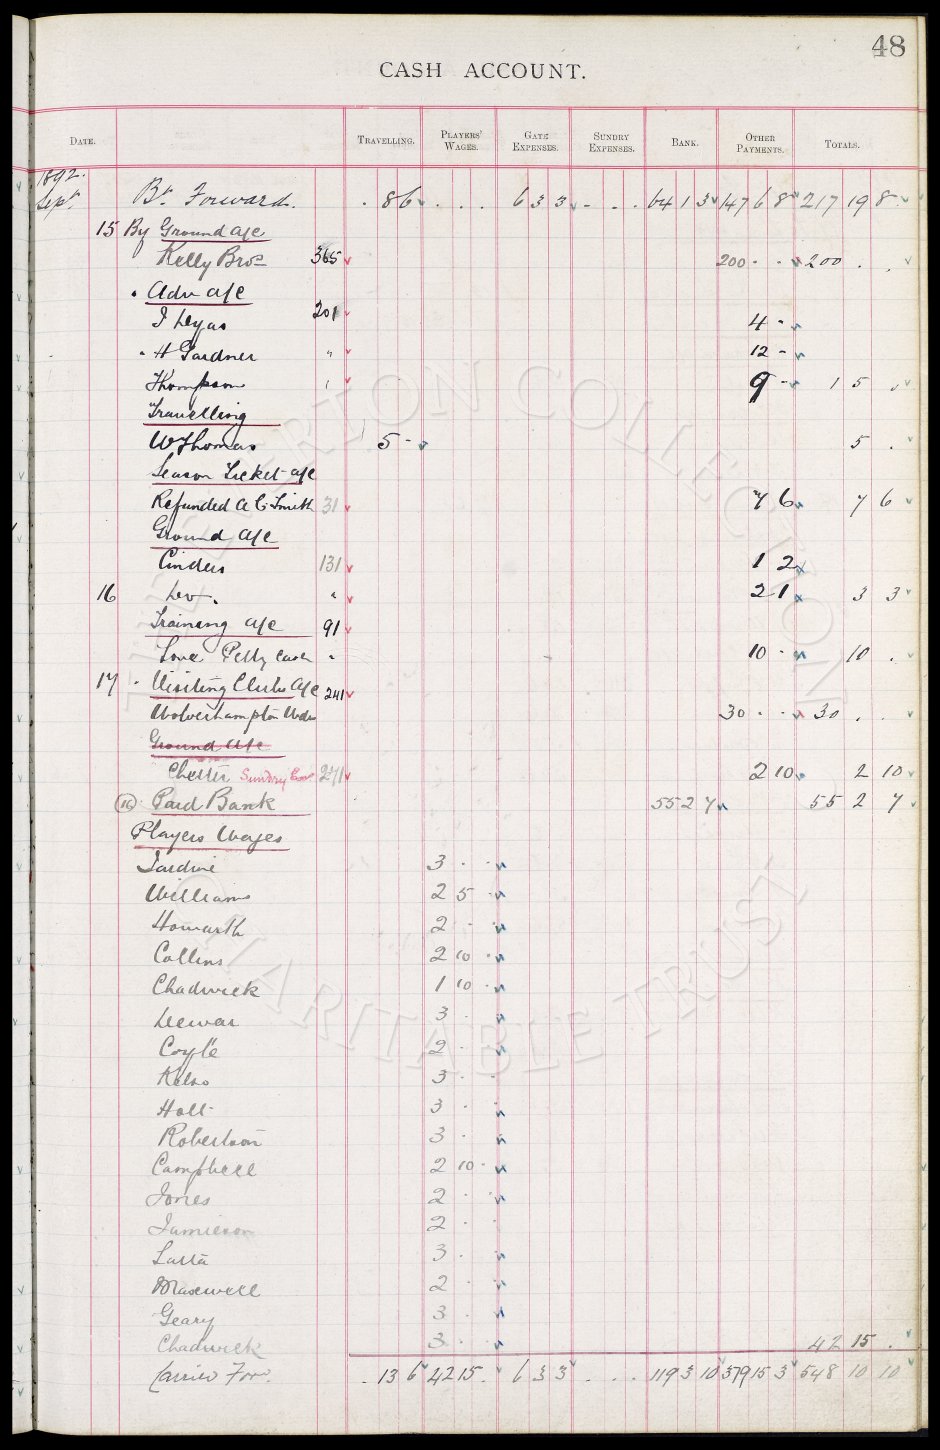 48
CASH ACCOUNT.
DATE. TRAVELLING. PLAYERS' WAGES. GATE EXPENSES. SUNDRY EXPENSES. BANK. OTHER PAYMENTS. TOTALS.
1892.
Sept. Bt. Forward. . 8 6 . . . 6 3 3 . . . 64 1 3 147 6 8 217 19 8
15 By Ground a/c
Kelly Bros 365 200 . . 200 . .
Adv a/c
J Dyas 201 4 -
" H Gardner " 12 -
Thompson " 9 - 1 5 .
Travelling
W Thomas 5 - 5 .
Season Ticket a/c
Refunded A C Smith 31 7 6 7 6
Ground a/c
Cinders 131 1 2
16 Do. " 2 1 3 3
Training a/c 91
Love Petty Cash " 10 . 10 .
17 " Visiting Clubs a/c 241
Wolverhampton Wdrs 30 . . 30 . .
Ground a/c
Chester Sundry Exs 271 2 10 2 10
(16) Paid Bank 55 2 7 55 2 7
Players Wages
Jardine 3 . .
Williams 2 5 .
Howarth 2 . .
Collins 2 10 .
Chadwick 1 10 .
Dewar 3 . .
Coyle 2 . .
Kelso 3 . .
Holt 3 . .
Robertson 3 . .
Campbell 2 10 .
Jones 2 . .
Jamieson 2 . .
Latta 3 . .
Maxwell 2 . .
Geary 3 . .
Chadwick 3 . . 42 15 .
Carried For. . 13 6 42 15 . 6 3 3 . . . 119 3 10 379 15 3 548 10 10
EVERTON COLLECTION
CHARITABLE TRUST